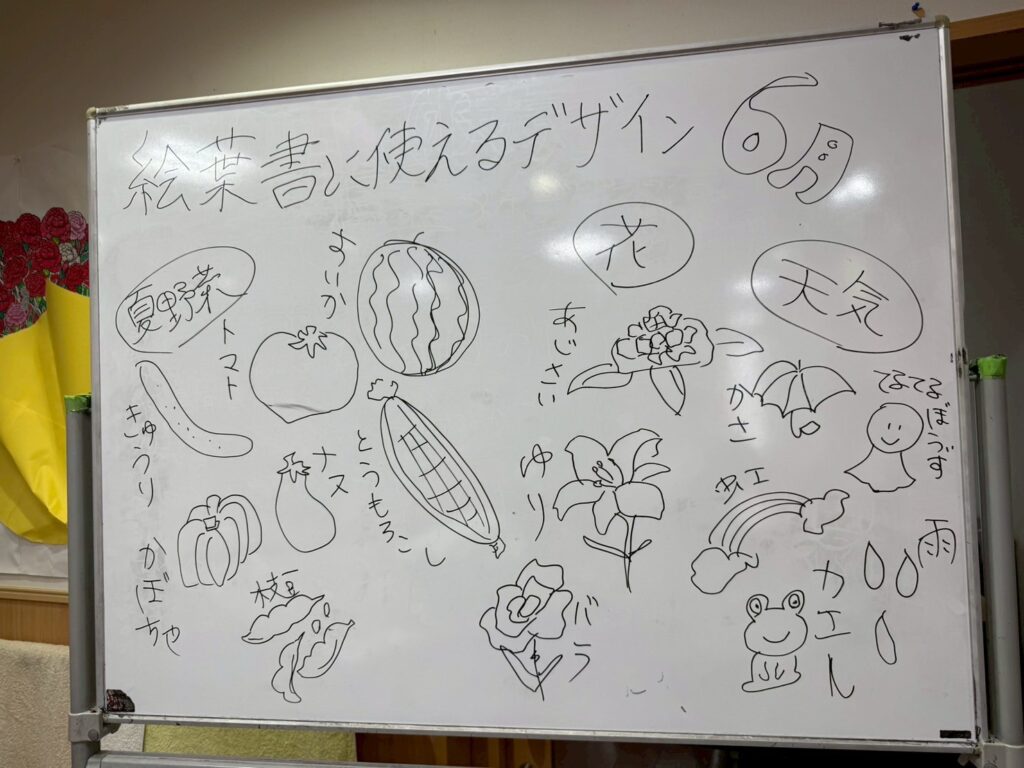 絵葉書に使えるデザイン 6月
夏野菜
すいか
トマト
きゅうり
ナス
とうもろこし
かぼちゃ
枝豆
花
あじさい
ゆり
バラ
天気
かさ
てるてるぼうず
虹
雨
カエル